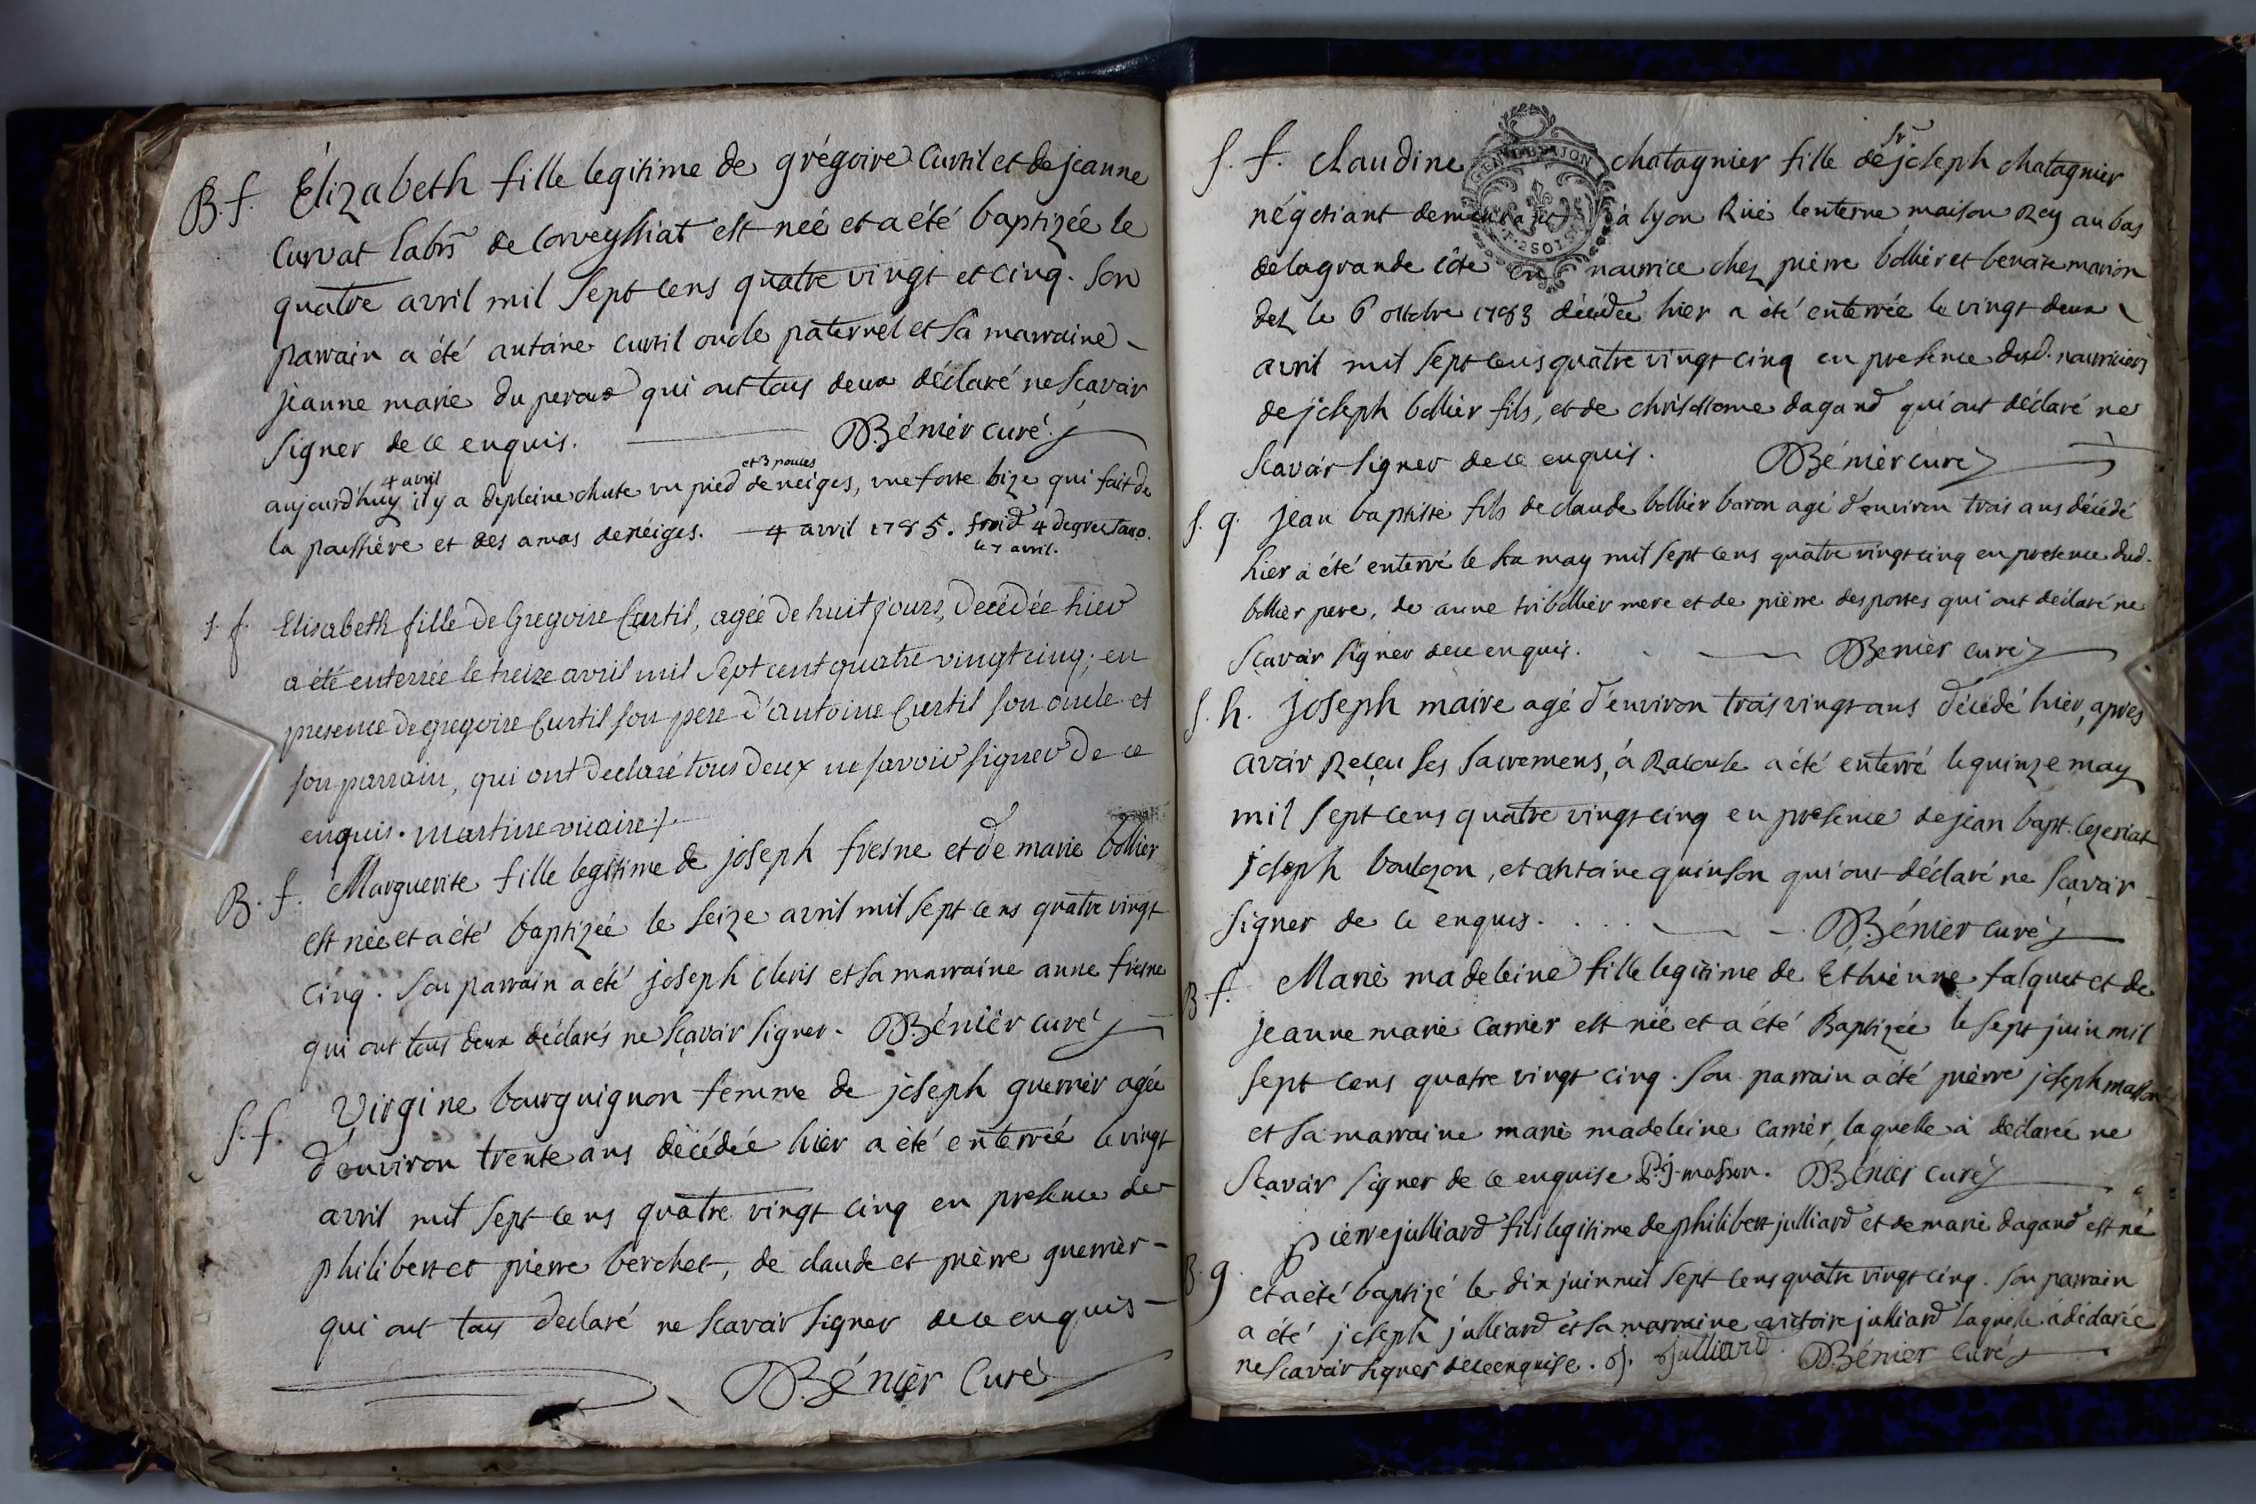 B. f. Élizabeth fille legitime de grégoire Curtil et de jeanne
Curvat labrs de Corveyssiat est neé et a été baptizée le
quatre avril mil sept cens quatre vingt et cinq. son
parrain a été antoine curtil oncle paternel et sa marraine
jeanne marie du peroux qui ont tous deux déclaré ne sçavoir
signer de ce enquis. Bénier curé
aujourd'huy 4 avril il y a de pleine chute un pied et 3 pouces de neiges, une forte bize qui fait de
la poussière et des amas de neiges. 4 avril 1785. froid 4 degres
le 7 avril.
s. f. Elisabeth fille de Gregoire Curtil, agée de huit jours, decédée hier
a été enterrée le treize avril mil sept cent quatre vingt cinq; en
presence de gregoire Curtil son pere d'antoine Curtil son oncle et
son parrain, qui ont declaré tous deux ne savoir signer de ce
enquis. martine vicaire
B. f. Marguerite fille legitime de joseph fresne et de marie bollier
est née et a été baptizée le seize avril mil sept cens quatre vingt
cinq. son parrain a été joseph cleris et sa marraine anne fresne
qui ont tous deux déclarés ne sçavoir signer. Bénier curé
s. f. Virgine bourguignon femme de joseph guerrier agée
d'environ trente ans décédée hier a été enterrée le vingt
avril mil sept cens quatre vingt cinq en presence de
philibert et pierre berchet, de claude et pierre guerrier
qui ont tous declaré ne scavoir signer de ce enquis
Bénier Curé
s. f. Claudine chatagnier fille de sr joseph chatagnier
négotiant demeurant à lyon Rüe lenterne maison Rey au bas
de la grande côte en nourrice chez pierre bollier et benoite marion
dez le 6 octobre 1783 décédée hier a été enterrée le vingt deux
avril mil sept cens quatre vingt cinq en presence dusd. nourriciers
de joseph bollier fils, et de chrisostome dagand qui ont déclaré ne
scavoir signer de ce enquis. Bénier curé
s. g. jean baptiste fils de claude bollier baron agé d'environ trois ans décédé
hier a été enterré le six may mil sept cens quatre vingt cinq en presence dud.
bollier pere, de anne tribollier mere et de pierre desportes qui ont déclaré ne
sçavoir signer de ce enquis. Benier curé
s. h. joseph maire agé d'environ trois vingt ans décédé hier, apres
avoir Reçeu ses sacremens, à Racouse a été enterré le quinze may
mil sept cens quatre vingt cinq en presence de jean bapt. lezeriat
joseph boulozon, et antoine guinson qui ont déclaré ne sçavoir
signer de ce enquis. Bénier curé
B. f. Marie madeleine fille legitime de Ethienne falquet et de
jeanne marie Carrier est née et a été Baptizée le sept juin mil
sept cens quatre vingt cinq. son parrain a été pierre joseph masson
et sa marraine marie madeleine Carrier, laquelle à déclarée ne
sçavoir signer de ce enquise P. j. masson. Bénier curé
B. g. Pierre julliard fils legitime de philibert julliard et de marie dagand est né
et a été baptizé le dix juin mil sept cens quatre vingt cinq. son parrain
a été joseph julliard et sa marraine victoire julliard laquelle a déclarée
ne scavoir signer de ce enquise. j. julliard. Bénier Curé